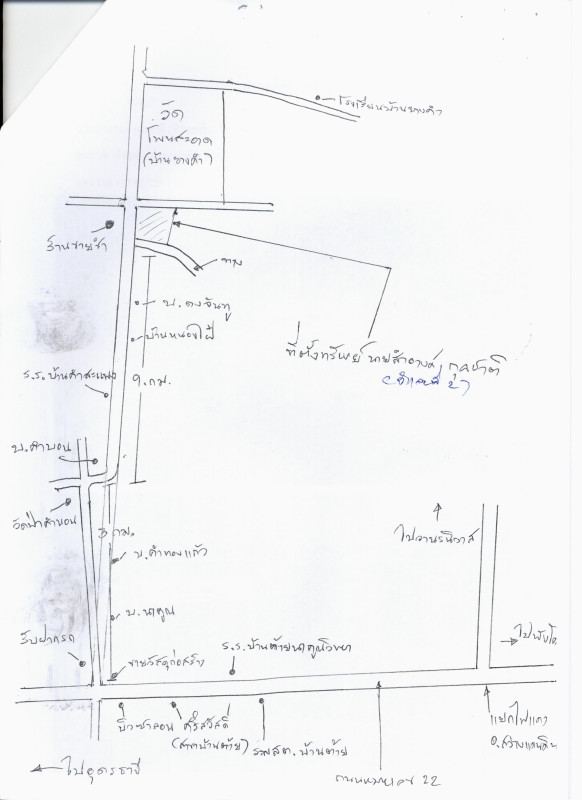 โรงเรียนบ้านยางคำ
วัด
โพนสะอาด
(บ้านยางคำ)
ร้านขายชำ
ทาง
บ.ดงจันทู
บ้านหนองไผ่
ที่ตั้งทรัพย์ นายสำอางค์ กุลชาติ
(จำเลยที่ 2)
ร.ร.บ้านคำสะแนง
9. กม.
บ.คำบอน
วัดป่าคำบอน
3 กม.
ไปวานรนิวาส
บ.คำทองแก้ว
บ.นาคูณ
รับฝากรถ
ขายวัสดุก่อสร้าง
ร.ร.บ้านต้ายนาคูณวิทยา
ไปพังโค
บิวซาลอน
ศรีสวัสดิ์
(สาขาบ้านต้าย)
รพสต.บ้านต้าย
แยกไฟแดง
อ.สว่างแดนดิน
ไปอุดรธานี
ถนนหมายเลข 22